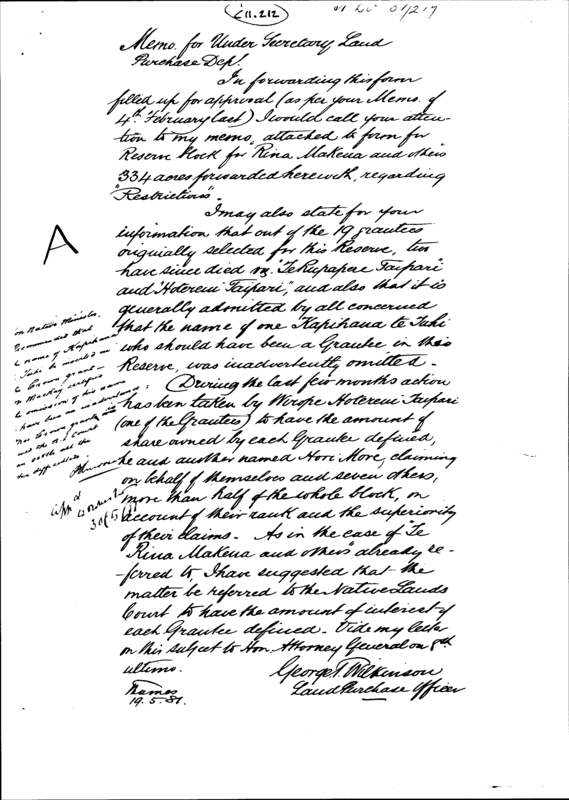 C11.212
Memo. for Under Secretary Land
Purchase Dept.
In forwarding this form
filled up for approval (as per your Memo. of
4th February last) I would call your atten-
tion to my memo. attached to form for
Reserve block for "Rina Makena and others"
334 acres forwarded herewith, regarding
"Restrictions".
I may also state for your
information that out of the 19 grantees
originally selected for this Reserve, two
have since died viz. "Te Rupapere Taipari"
and "Hotereni Taipari", and also that it is
generally admitted by all concerned
that the name of one Kapihana te Tuhi
who should have been a Grantee in this
Reserve, was inadvertently omitted.
During the last few months action
has been taken by Wirope Hotereni Taipari
(one of the Grantees) to have the amount of
share owned by each Grantee defined,
he and another named Hori More, claiming
on behalf of themselves and seven others,
more than half of the whole block, on
account of their rank and the superiority
of their claims. As in the case of "Te
Rina Makena and others" already re-
-ferred to, I have suggested that the
matter be referred to the Native Lands
Court to have the amount of interest of
each Grantee defined. Vide my letter
on this subject to Hon. Attorney General on 8th
ultimo.
George T. Wilkinson
Land Purchase Officer
Thames
19.5.81.
A
Hon Native Minister.
Recommended that
name of Kapihana
Tuhi be inserted in
Crown grant
Mr Mackay certifies
omission of his name
have been an inadvertence